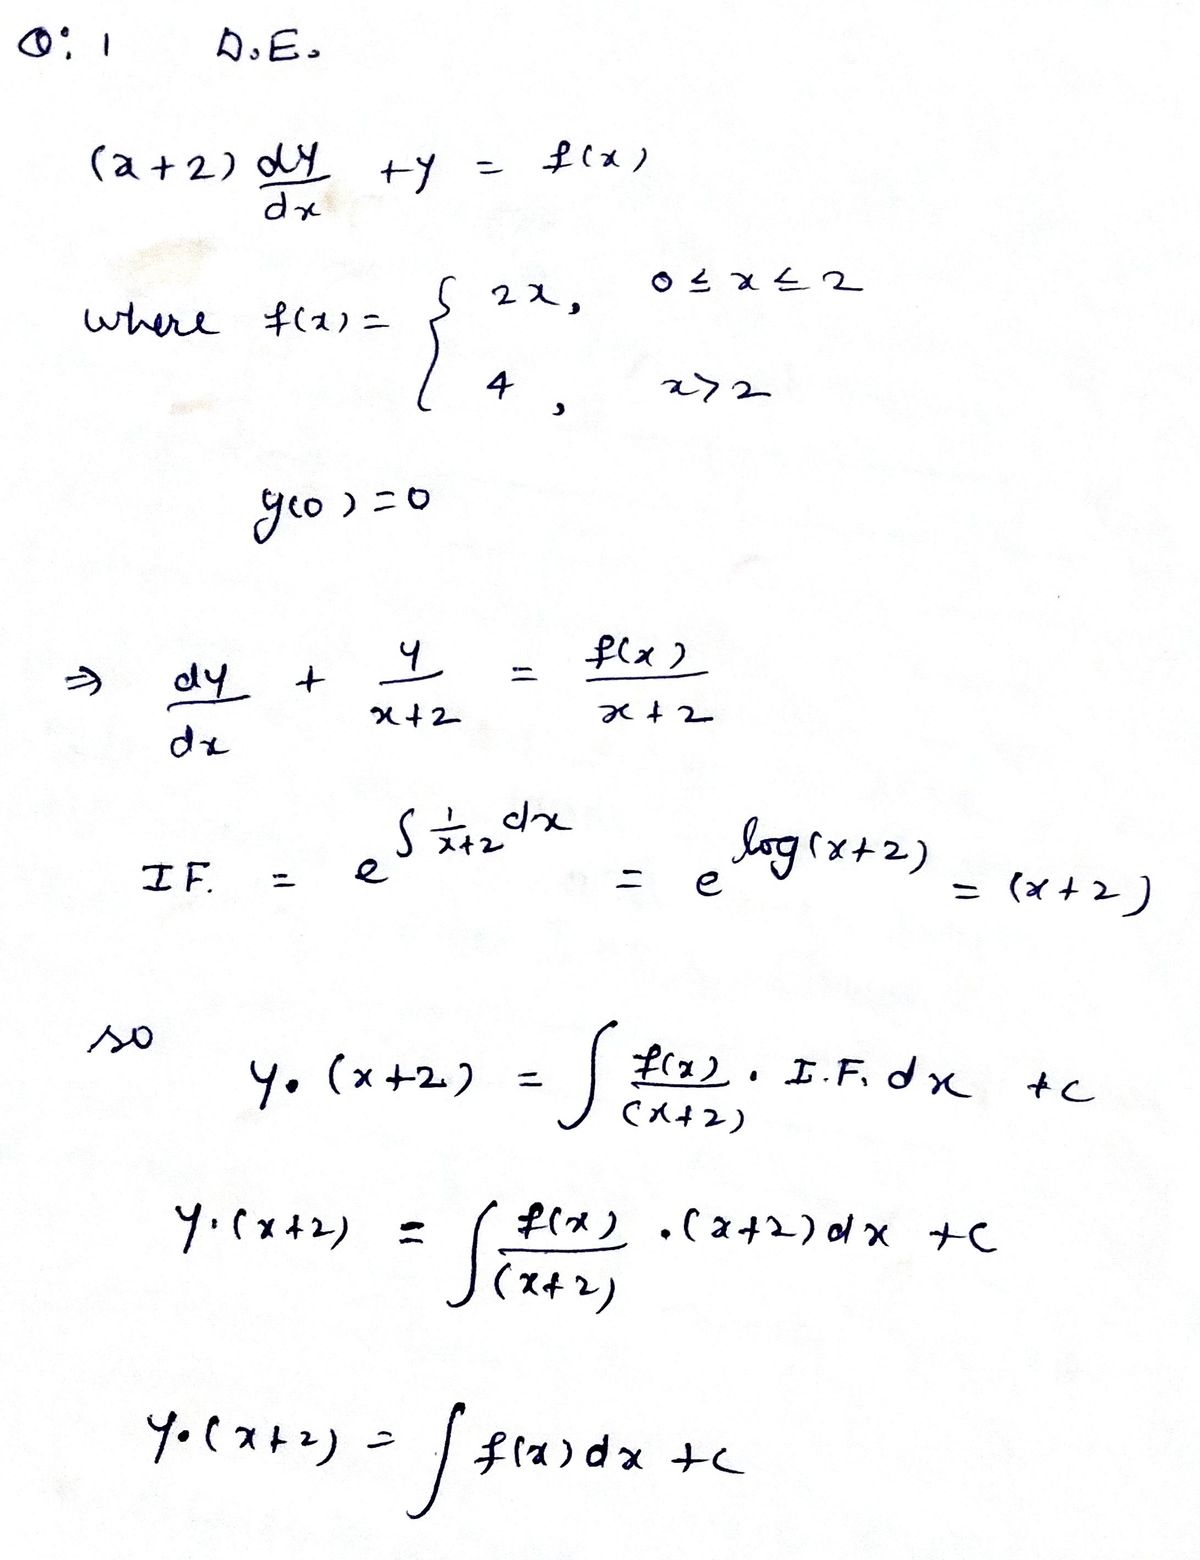 Q: 1 D.E.
(x+2) dy/dx + y = f(x)
where f(x) = { 2x, 0 ≤ x ≤ 2
4, x>2
y(0) = 0
⇒ dy/dx + y/x+2 = f(x)/x+2
I F. = e^∫ 1/x+2 dx = e^log(x+2) = (x+2)
so
y. (x+2) = ∫ f(x)/(x+2) . I.F. dx + c
y.(x+2) = ∫ f(x)/(x+2) .(x+2) dx + c
y.(x+2) = ∫ f(x) dx + c